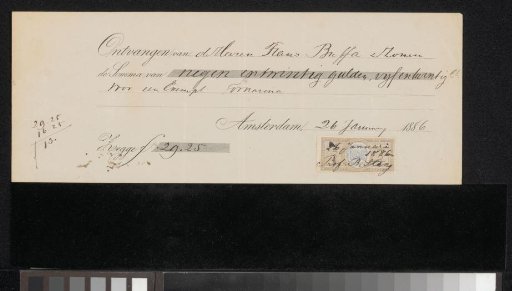 Ontvangen van de Heeren Frans Buffa & Zonen
de Somma van negen en twintig gulden, vyf en twintig Ct
voor een Exempl. Fornarina
Amsterdam, 26 January 1886
Zegge f 29.25
29.25
16.25
13.-
26 Januari
1886